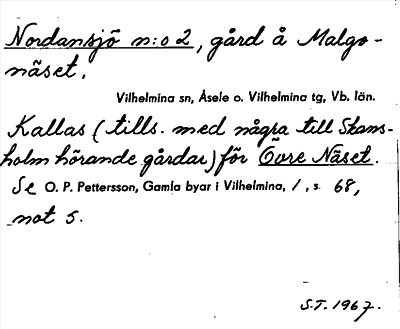 Nordansjö n:o 2, gård å Malgo-
näset.
Vilhelmina sn, Åsele o. Vilhelmina tg, Vb. län.
Kallas (tills. med några till Skans-
holm hörande gårdar) för Övre Näset.
Se O. P. Pettersson, Gamla byar i Vilhelmina, 1, s. 68,
not 5.
S.T. 1967.